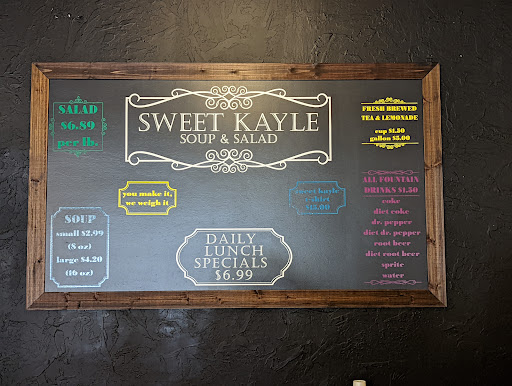 SWEET KAYLE
SOUP & SALAD
SALAD
$6.89
per lb.
FRESH BREWED
TEA & LEMONADE
cup $1.50
gallon $5.00
you make it,
we weigh it
sweet kayle
t-shirt
$15.00
ALL FOUNTAIN
DRINKS $1.50
coke
diet coke
dr. pepper
diet dr. pepper
root beer
diet root beer
sprite
water
SOUP
small $2.99
(8 oz)
large $4.20
(16 oz)
DAILY
LUNCH
SPECIALS
$6.99